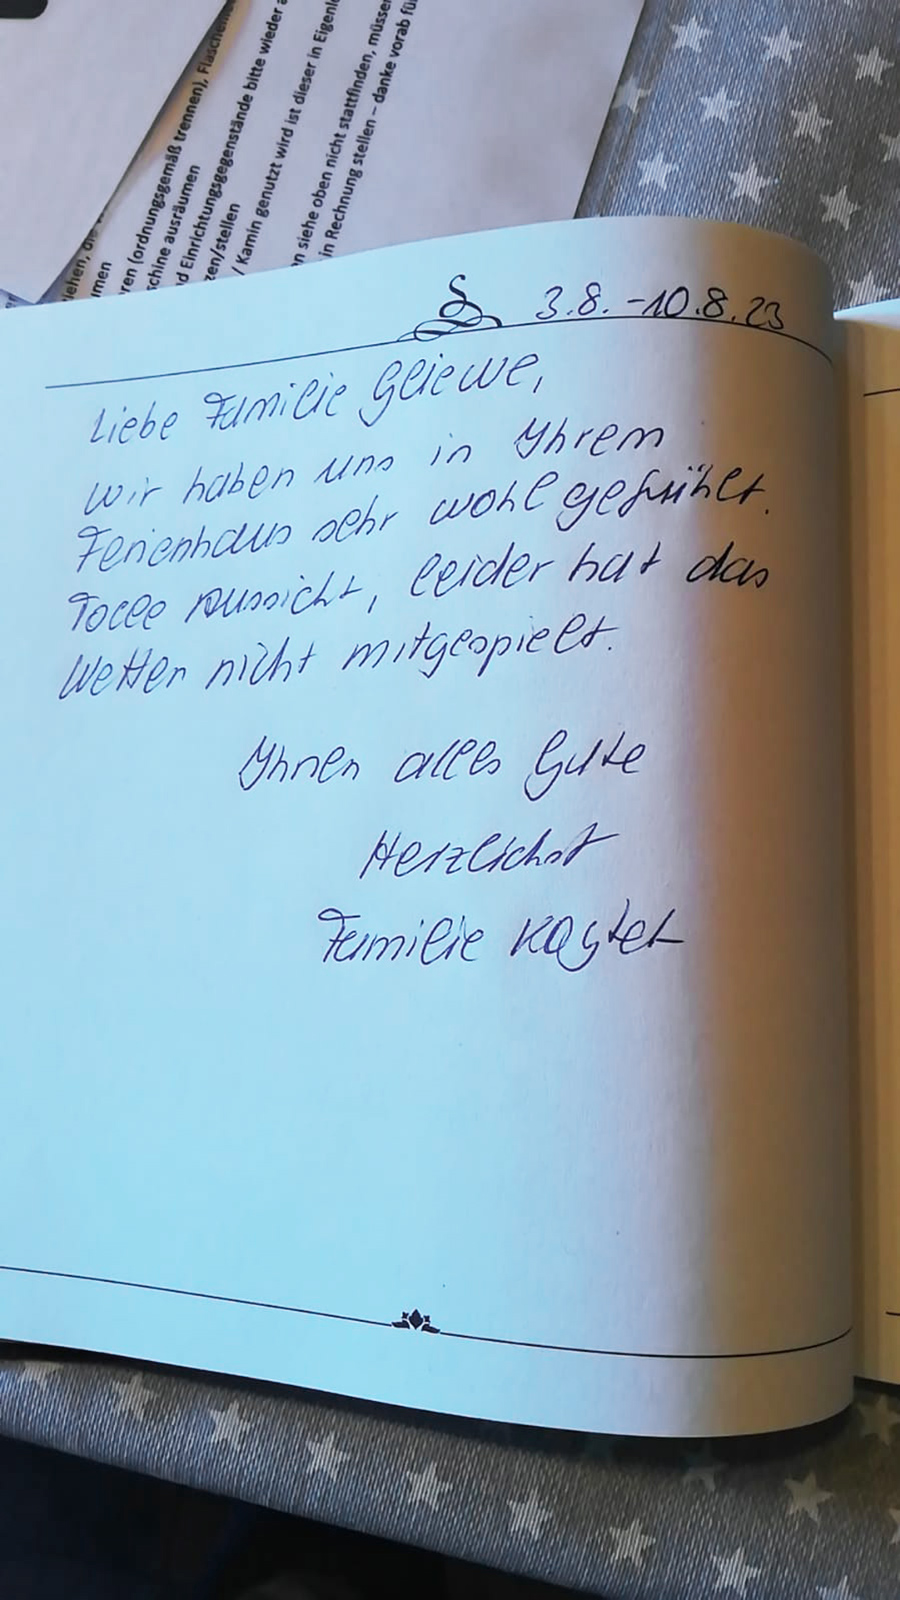 ren (ordnungsgemäß trennen), Flaschen
schine ausräumen
d Einrichtungsgegenstände bitte wieder a
zen/stellen
/ Kamin genutzt wird ist dieser in Eigenle
n siehe oben nicht stattfinden, müssen
in Rechnung stellen – danke vorab fü
3.8. - 10.8.23
Liebe Familie Gliewe,
wir haben uns in Ihrem
Ferienhaus sehr wohl gefühlt.
Tolle Aussicht, leider hat das
Wetter nicht mitgespielt.
Ihnen alles Gute
Herzlichst
Familie